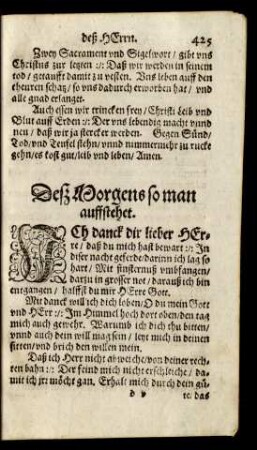 deß HErrn. 425
Zwey Sacrament vnd Sigelwort / gibt vns
Christus zur letzen :/: Daß wir werden in seinem
tod / getaufft damit zu vesten. Vns leben auff den
theuren schatz / so vns dadurch erworben hat / vnd
alle gnad erlanget.
Auch essen wir trincken frey / Christi Leib vnd
Blut auff Erden :/: Der vns lebendig macht vnnd
neu / daß wir ja stercker werden. Gegen Sünd /
Tod / vnd Teufel stehn / vnnd nimmermehr zu rucke
gehn / es kost gut / leib vnd leben / Amen.
Deß Morgens so man
auffstehet.
ICh danck dir lieber HEr-
re / daß du mich hast bewart :/: In
diser nacht geferde / darinn ich lag so
hart / Mit finsternuß vmbfangen /
darzu in grosser not / darauß ich bin
entgangen / halffst du mir HErre Gott.
Mit danck will ich dich loben / O du mein Gott
vnd HErr :/: Im Himmel hoch dort oben / den tag
mich auch gewehr. Warumb ich dich thu bitten /
vnnd auch dein will mag sein / leyt mich in deinen
sitten / vnd brich den willen mein.
Daß ich Herr nicht abweiche / von deiner rech-
ten bahn :/: Der feind mich nicht erschleiche / da-
mit ich irr möcht gan. Erhalt mich durch dein gü-
d v te / das